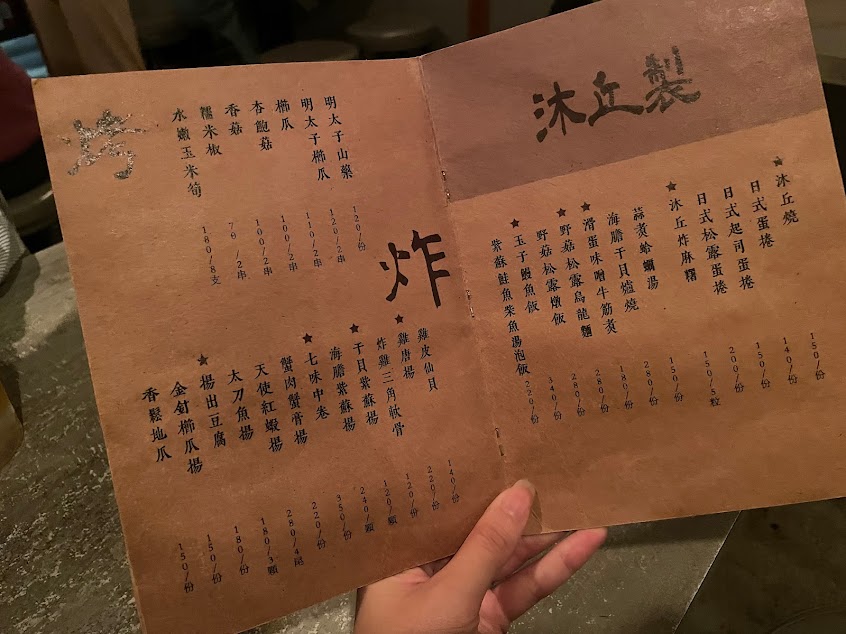 沐丘製
★沐丘燒 150/份
日式蛋捲 140/份
日式起司蛋捲 150/份
日式松露蛋捲 200/份
★沐丘炸麻糬 150/5粒
蒜炙蛤蠣湯 150/份
海膽干貝爐燒 280/份
★滑蛋味噌牛筋炙 180/份
★野菇松露烏龍麵 280/份
野菇松露燉飯 280/份
★玉子鰻魚飯 340/份
紫蘇鮭魚柴魚湯泡飯 220/份
烤
明太子山藥 120/份
明太子櫛瓜 120/2串
櫛瓜 110/2串
杏飽菇 100/2串
香菇 100/2串
糯米椒 70/2串
水嫩玉米筍 180/8支
炸
雞皮仙貝 140/份
★雞唐揚 220/份
炸雞三角軟骨 120/份
★干貝紫蘇揚 120/顆
海膽紫蘇揚 240/顆
★七味中卷 350/份
蟹肉蟹膏揚 220/份
天使紅蝦揚 280/4尾
太刀魚揚 180/3顆
★揚出豆腐 180/份
金針櫛瓜揚 150/份
香鬆地瓜 150/份